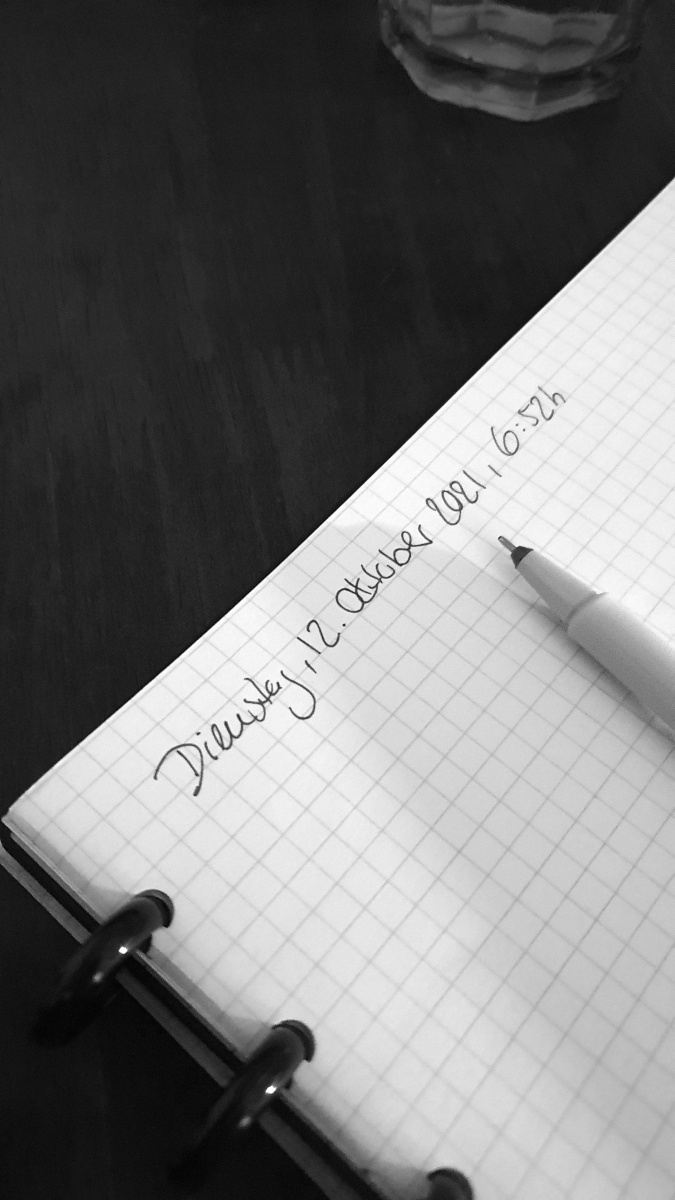 Dienstag, 12. Oktober 2021, 6:52h